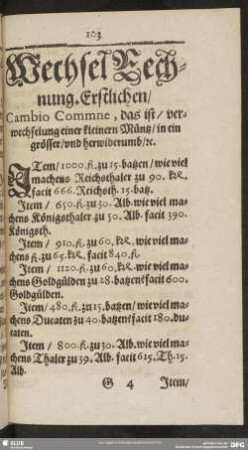 103
Wechsel Rech-
nung. Erstlichen/
Cambio Commne, das ist/ ver-
wechselung einer kleinern Müntz/ in ein
grösser/ vnd herwiderumb/ ꝛc.
ITem/ 1000. fl. zu 15. batzen/ wie viel
machens Reichsthaler zu 90. kr.
facit 666. Reichsth. 15. batz.
Item/ 650. fl. zu 30. Alb. wie viel ma-
chens Königsthaler zu 50. Alb. facit 390.
Königsth.
Item/ 910. fl. zu 60. kr. wie viel ma-
chens fl. zu 65. kr. facit 840. fl.
Item/ 1120. fl. zu 60. kr. wie viel ma-
chens Goldgülden zu 28. batzen? facit 600.
Goldgülden.
Item/ 480. fl. zu 15. batzen/ wie viel ma-
chens Ducaten zu 40. batzen? facit 180. du-
caten.
Item/ 800. fl. zu 30. Alb. wie viel ma-
chens Thaler zu 39. Alb. facit 615. Th. 15.
Alb.
G 4 Item/
SLUB